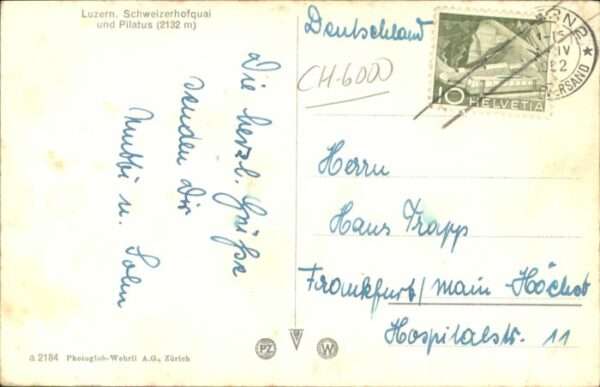 Luzern. Schweizerhofquai
und Pilatus (2132 m)
Deutschland
CH-6000
10 HELVETIA
Die herzl. Grüße
senden Dir
Mutti u. Sohn
Herrn
Hans Trapp
Frankfurt/Main-Höchst
Hospitalstr. 11
a 2184 Photoglob-Wehrli A.G., Zürich
PZ
W